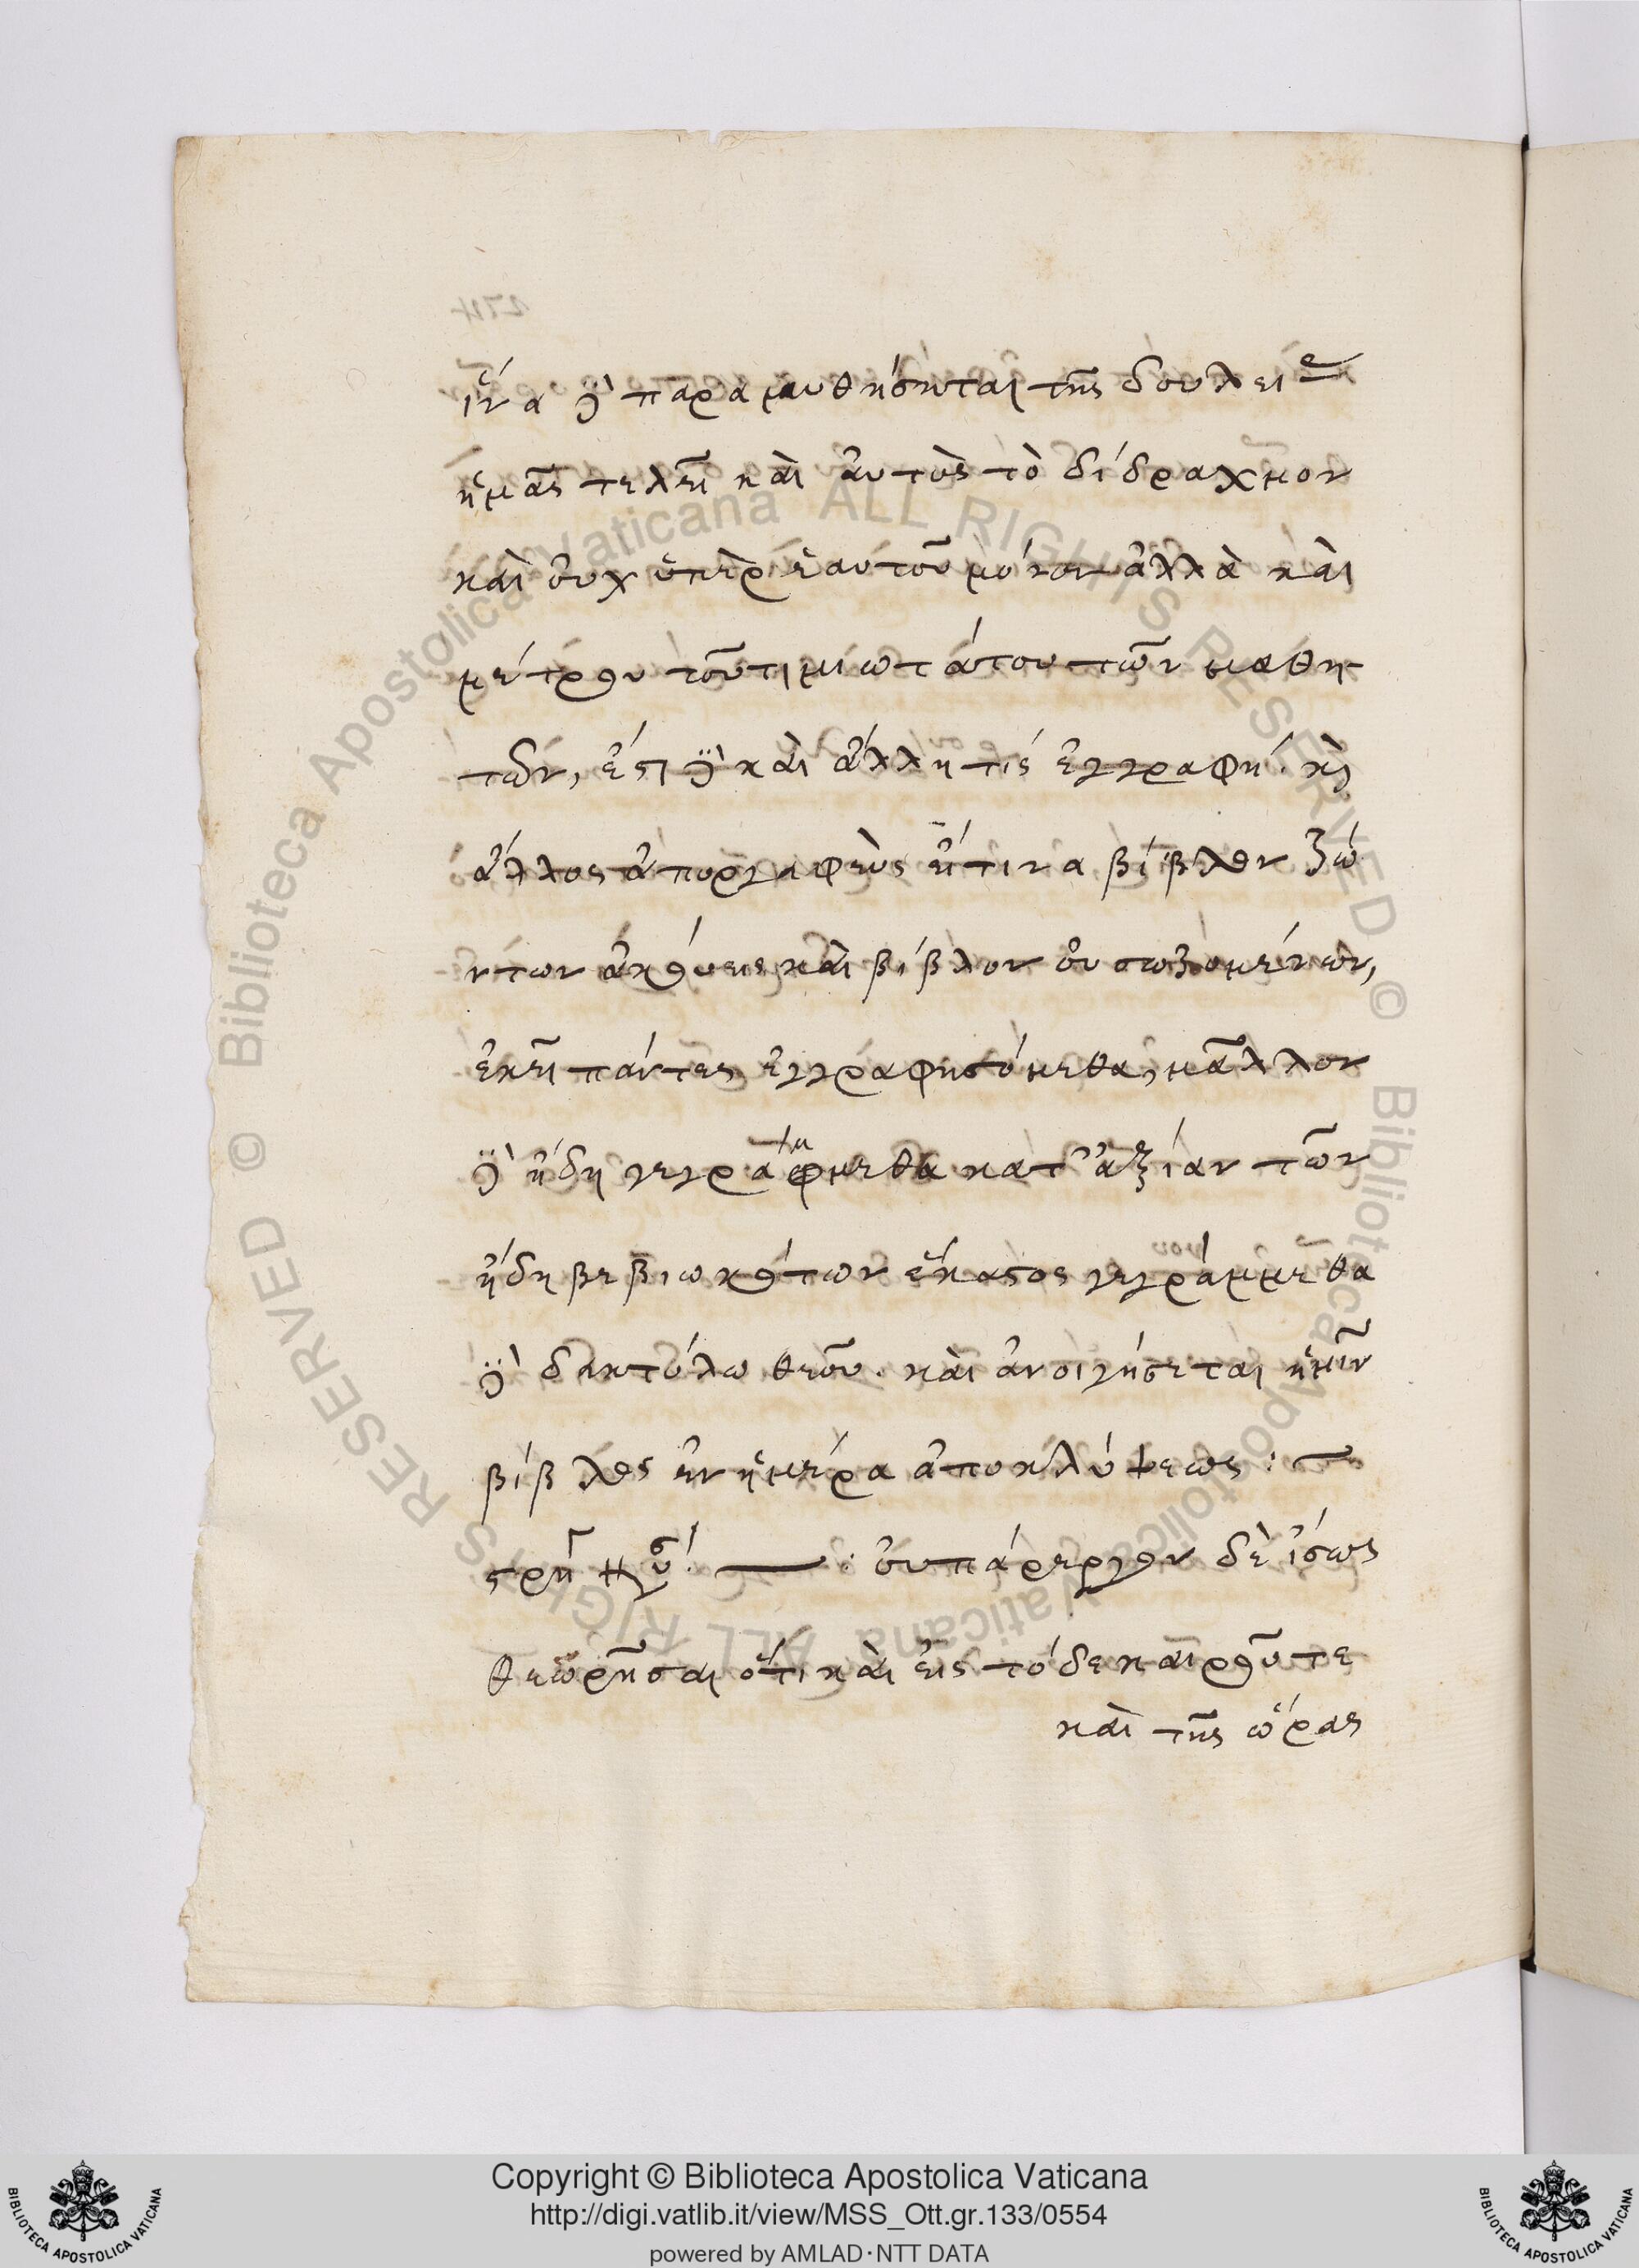 ἵνα δὲ παραμυθήσηται τῆς δουλείας
ἡμᾶς τελεῖ καὶ ἀυτὸς τὸ δίδραχμον
καὶ ὀυχ ὑπὲρ ἑαυτοῦ μόνον ἀλλὰ καὶ
πέτρου τοῦ τιμιωτάτου τῶν μαθη
τῶν, ἔστι δὲ καὶ ἄλλη τὶς ἐγγραφή. κὶ
ἄλλος ἀπογραφεὺς εἴτινα βίβλον ζώ
ντων ἀκούεις καὶ βίβλον ὀυ σωζομένων,
ἐκεῖ πάντες ἐγγραφησόμεθα, μᾶλλον
δὲ ἤδη γεγράμμεθα κατ' ἀξίαν τῶν
ἤδη βεβιωκότων ἕκαστος γεγράμμεθα
δὲ δακτύλω θεοῦ. καὶ ἀνοιγήσεται ἡμῖν
βίβλος ἐν ἡμέρα ἀποκλύψεως :
ὀυ πάρεργον δὲ ἴσως
θεωρῆσαι ὅτι καὶ εἰς τόδε καιροῦ τε
καὶ τῆς ὥρας
Copyright © Biblioteca Apostolica Vaticana
http://digi.vatlib.it/view/MSS_Ott.gr.133/0554
powered by AMLAD·NTT DATA
BIBLIOTECA APOSTOLICA VATICANA
BIBLIOTECA APOSTOLICA VATICANA
© Biblioteca Apostolica Vaticana ALL RIGHTS RESERVED © Biblioteca Apostolica Vaticana ALL RIGHTS RESERVED